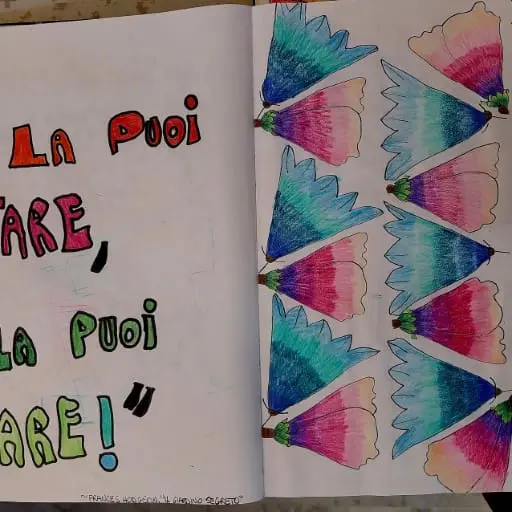 LA PUOI
TARE,
LA PUOI
ARE!"
~FRANCES HODGSON, "IL GIARDINO SEGRETO"